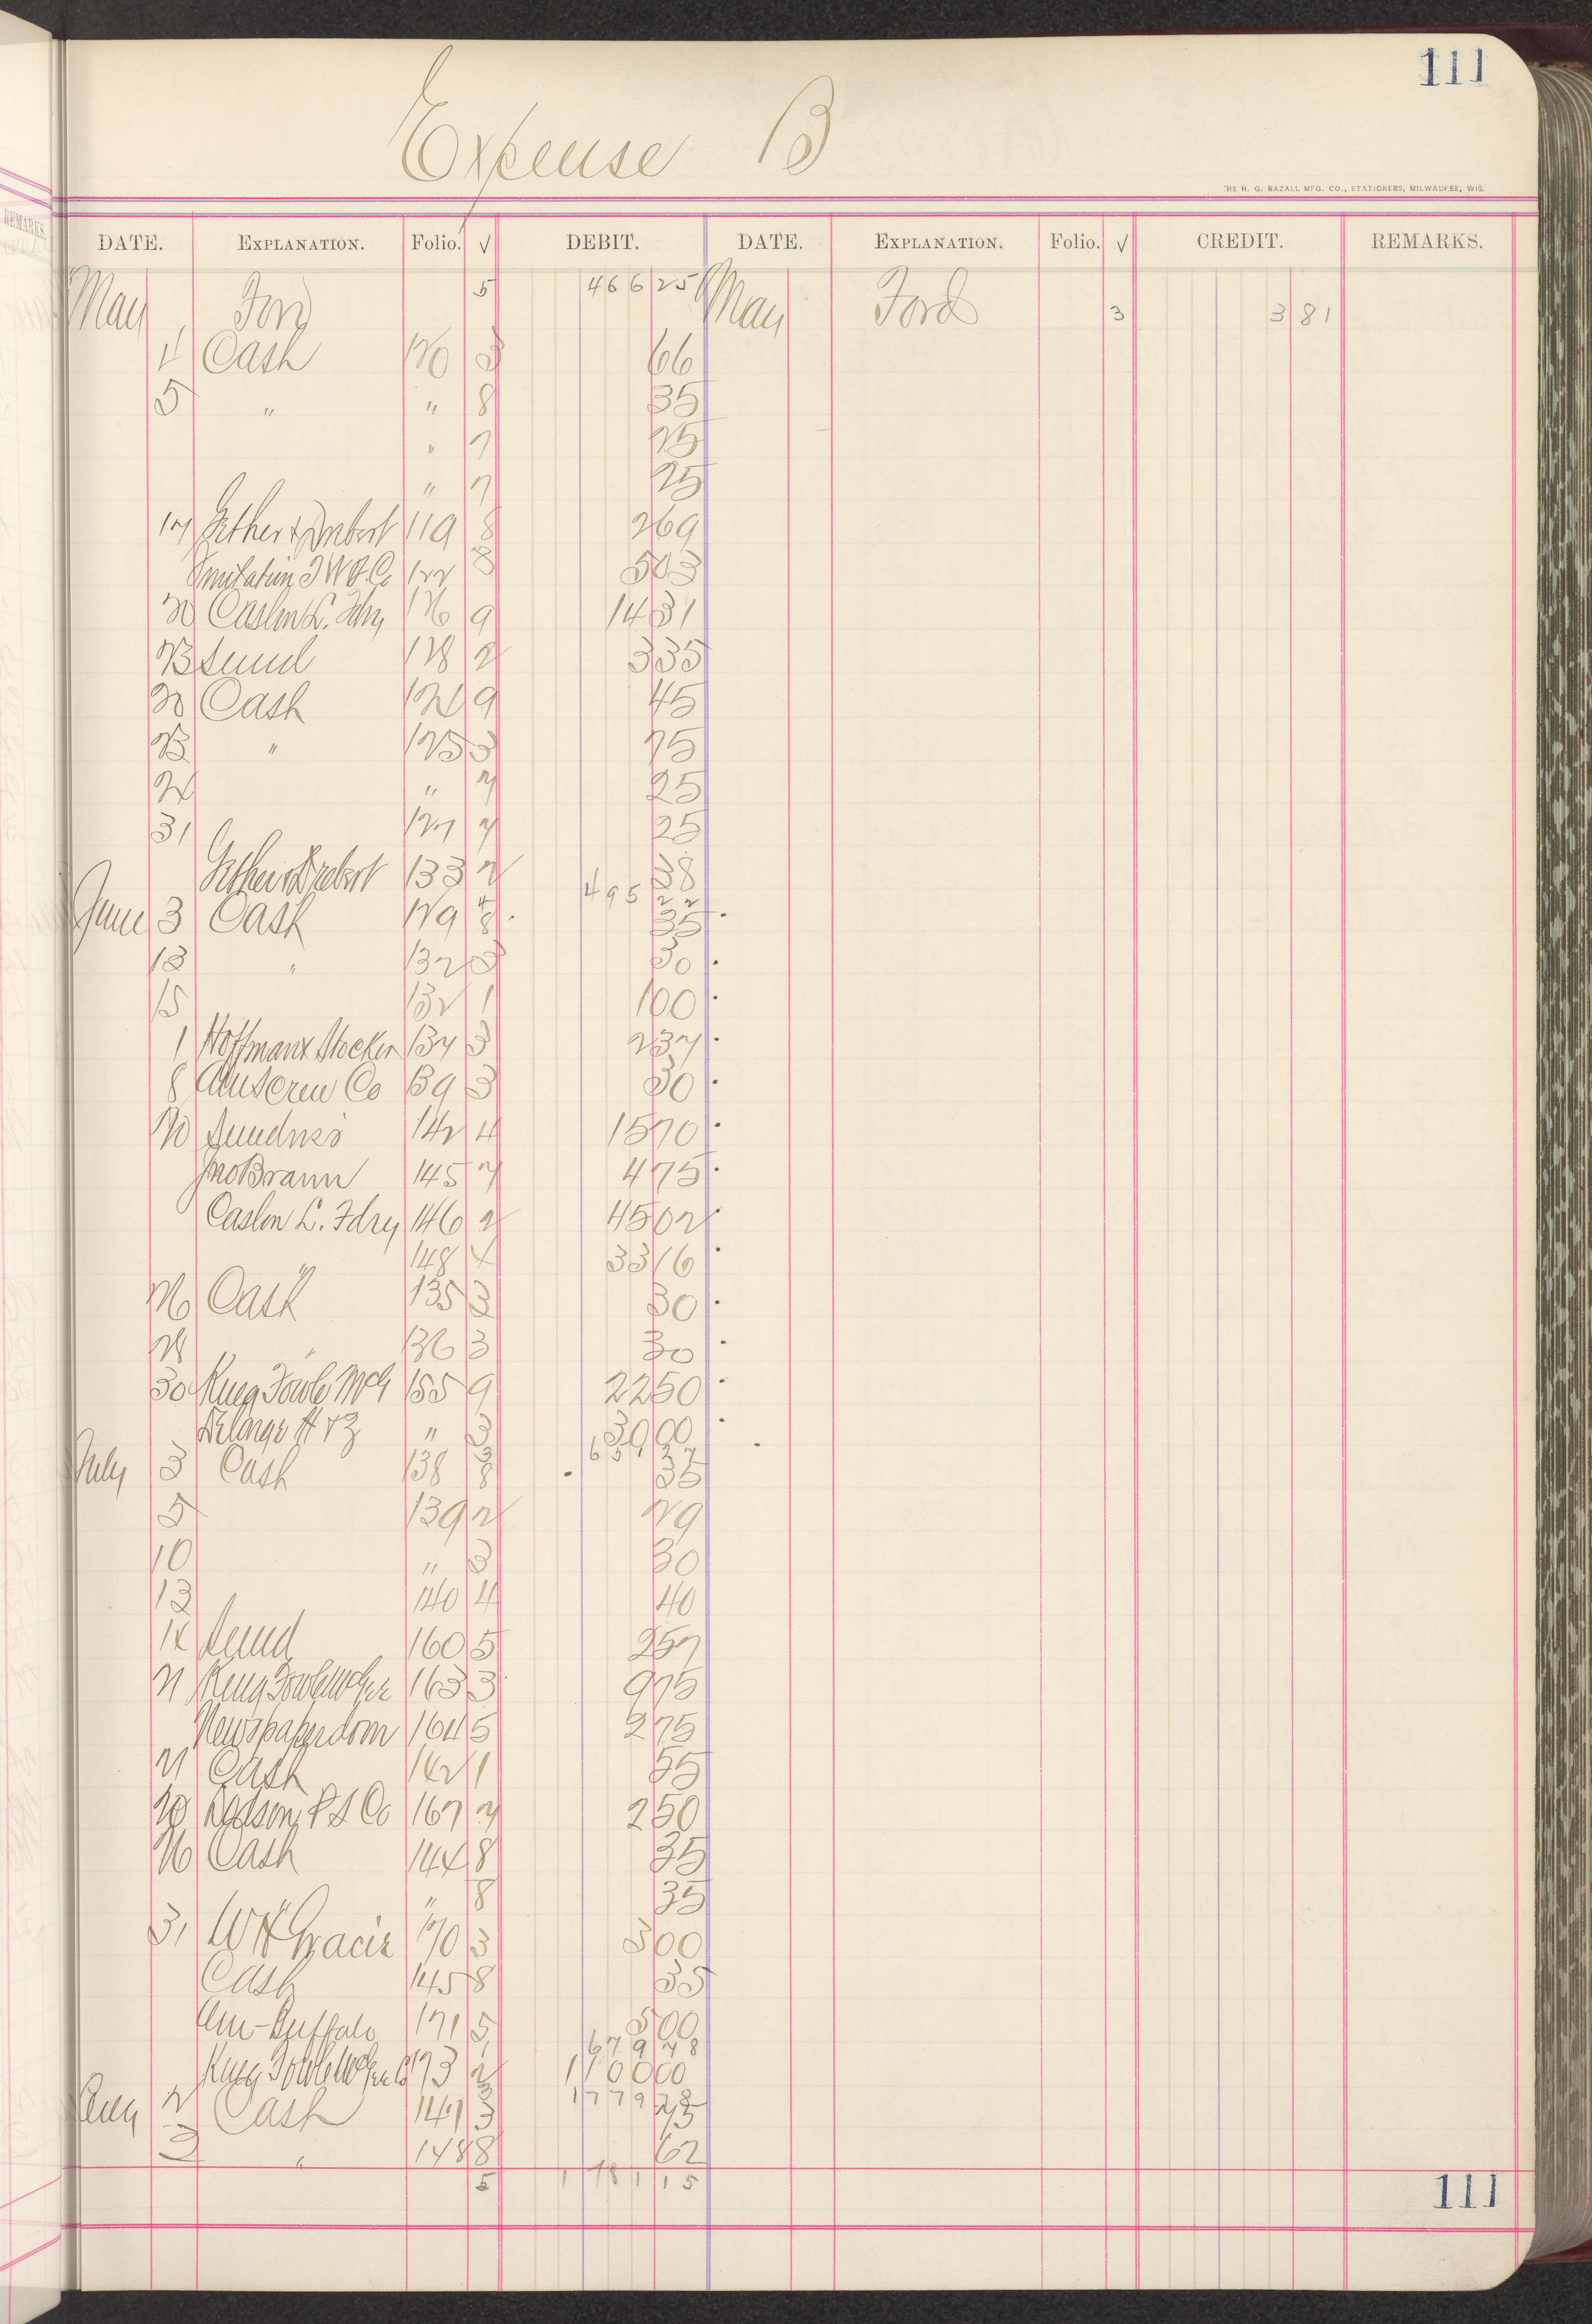 111
Expense B
THE H. G. RAZALL MFG. CO., STATIONERS, MILWAUKEE, WIS.
REMARKS.
DATE. EXPLANATION. Folio. √ DEBIT. DATE. EXPLANATION. Folio. √ CREDIT. REMARKS.
May For 5 466 25 May Ford 3 3 81
Cash 3 66
5 " " 8 35
" 7 25
" 7 25
17 Gether & Drebert 119 8 2 69
8 5 03
20 Caslon L. Fdry 126 9 14 31
23 Lund 128 2 3 35
20 Cash 9 45
23 " 125 3 75
24 " 7 25
31 127 7 25
Gether & Drebert 133 2 38
495 22
June 3 Cash 129 8 35
13 " 132 3 30
15 132 1 1 00
1 Hoffman & Stocker 137 3 2 37
8 Co 139 3 30
20 142 4 15 70
Jno Brann 145 7 4 75
Caslon L. Fdry 146 2 45 02
148 4 33 16
26 Cash 135 3 30
28 " 136 3 30
30 Krug Fowle 155 9 22 50
" 3 30 00
651 27
July 3 Cash 138 8 35
5 139 2 29
10 " 3 30
13 140 4 40
14 Lund 160 5 2 57
21 Krug Fowle 163 3 9 75
Newspaperdom 164 5 2 75
21 Cash 142 1 55
Co 167 7 2 50
26 Cash 144 8 35
" 8 35
31 W H Gracie 170 3 3 00
Cash 145 8 35
Am-Buffalo 171 5 5 00
679 78
Krug Fowle 173 2 1100 00
1779 78
Aug 2 Cash 147 3 75
3 " 148 8 62
5 1 781 15
111